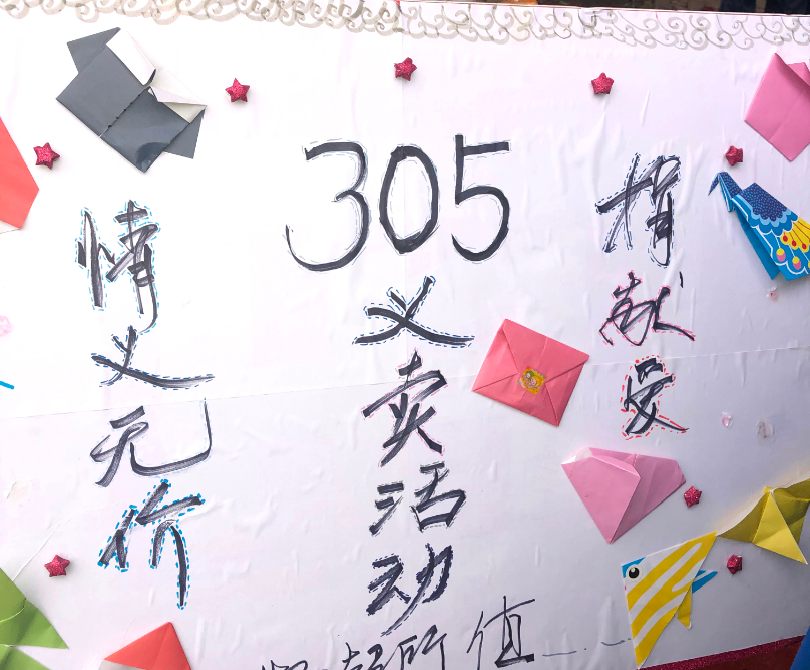 305
义卖活动
捐献爱
情义无价
所值